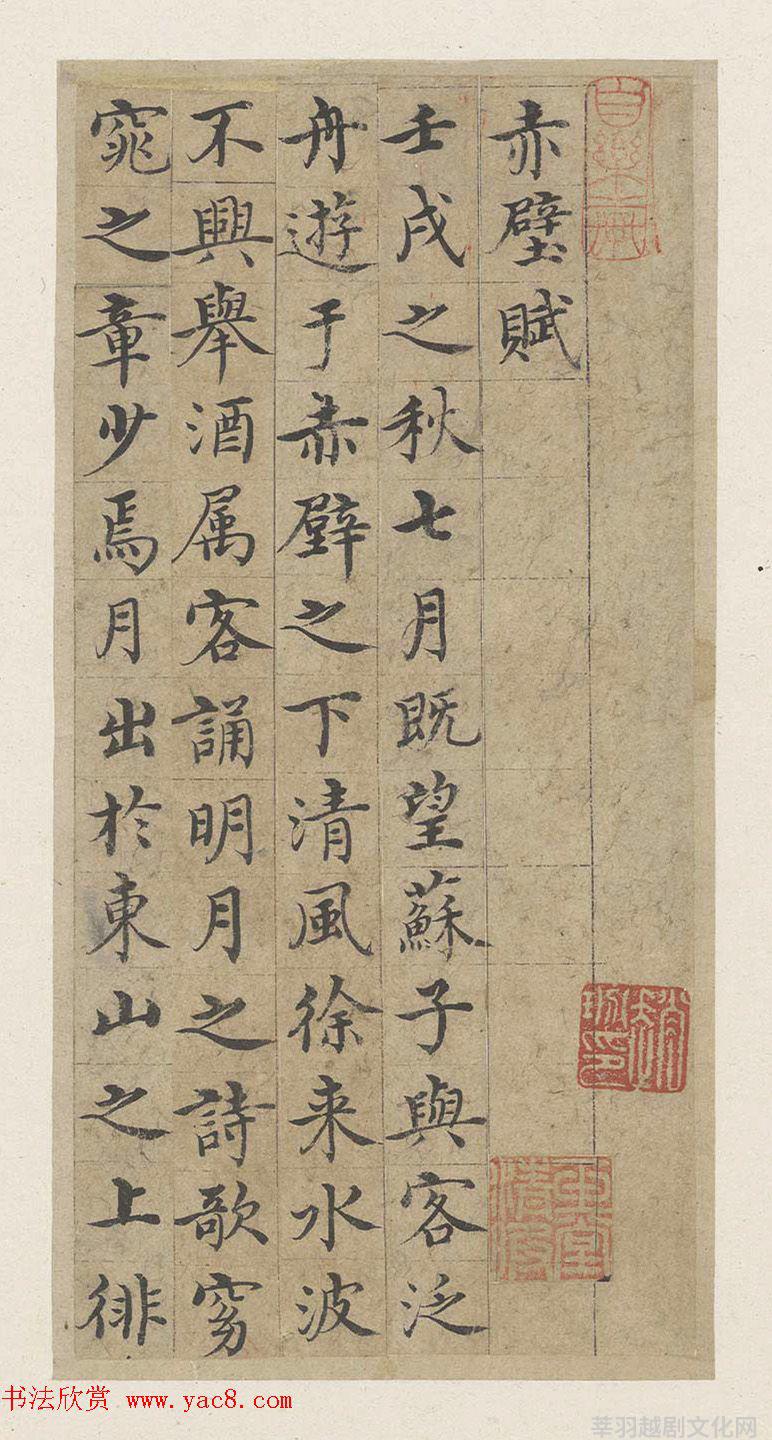 赤壁賦
壬戌之秋七月既望蘇子與客泛
舟遊于赤壁之下清風徐来水波
不興舉酒属客誦明月之詩歌窈
窕之章少焉月出於東山之上徘
书法欣赏 www.yac8.com
莘羽越剧文化网